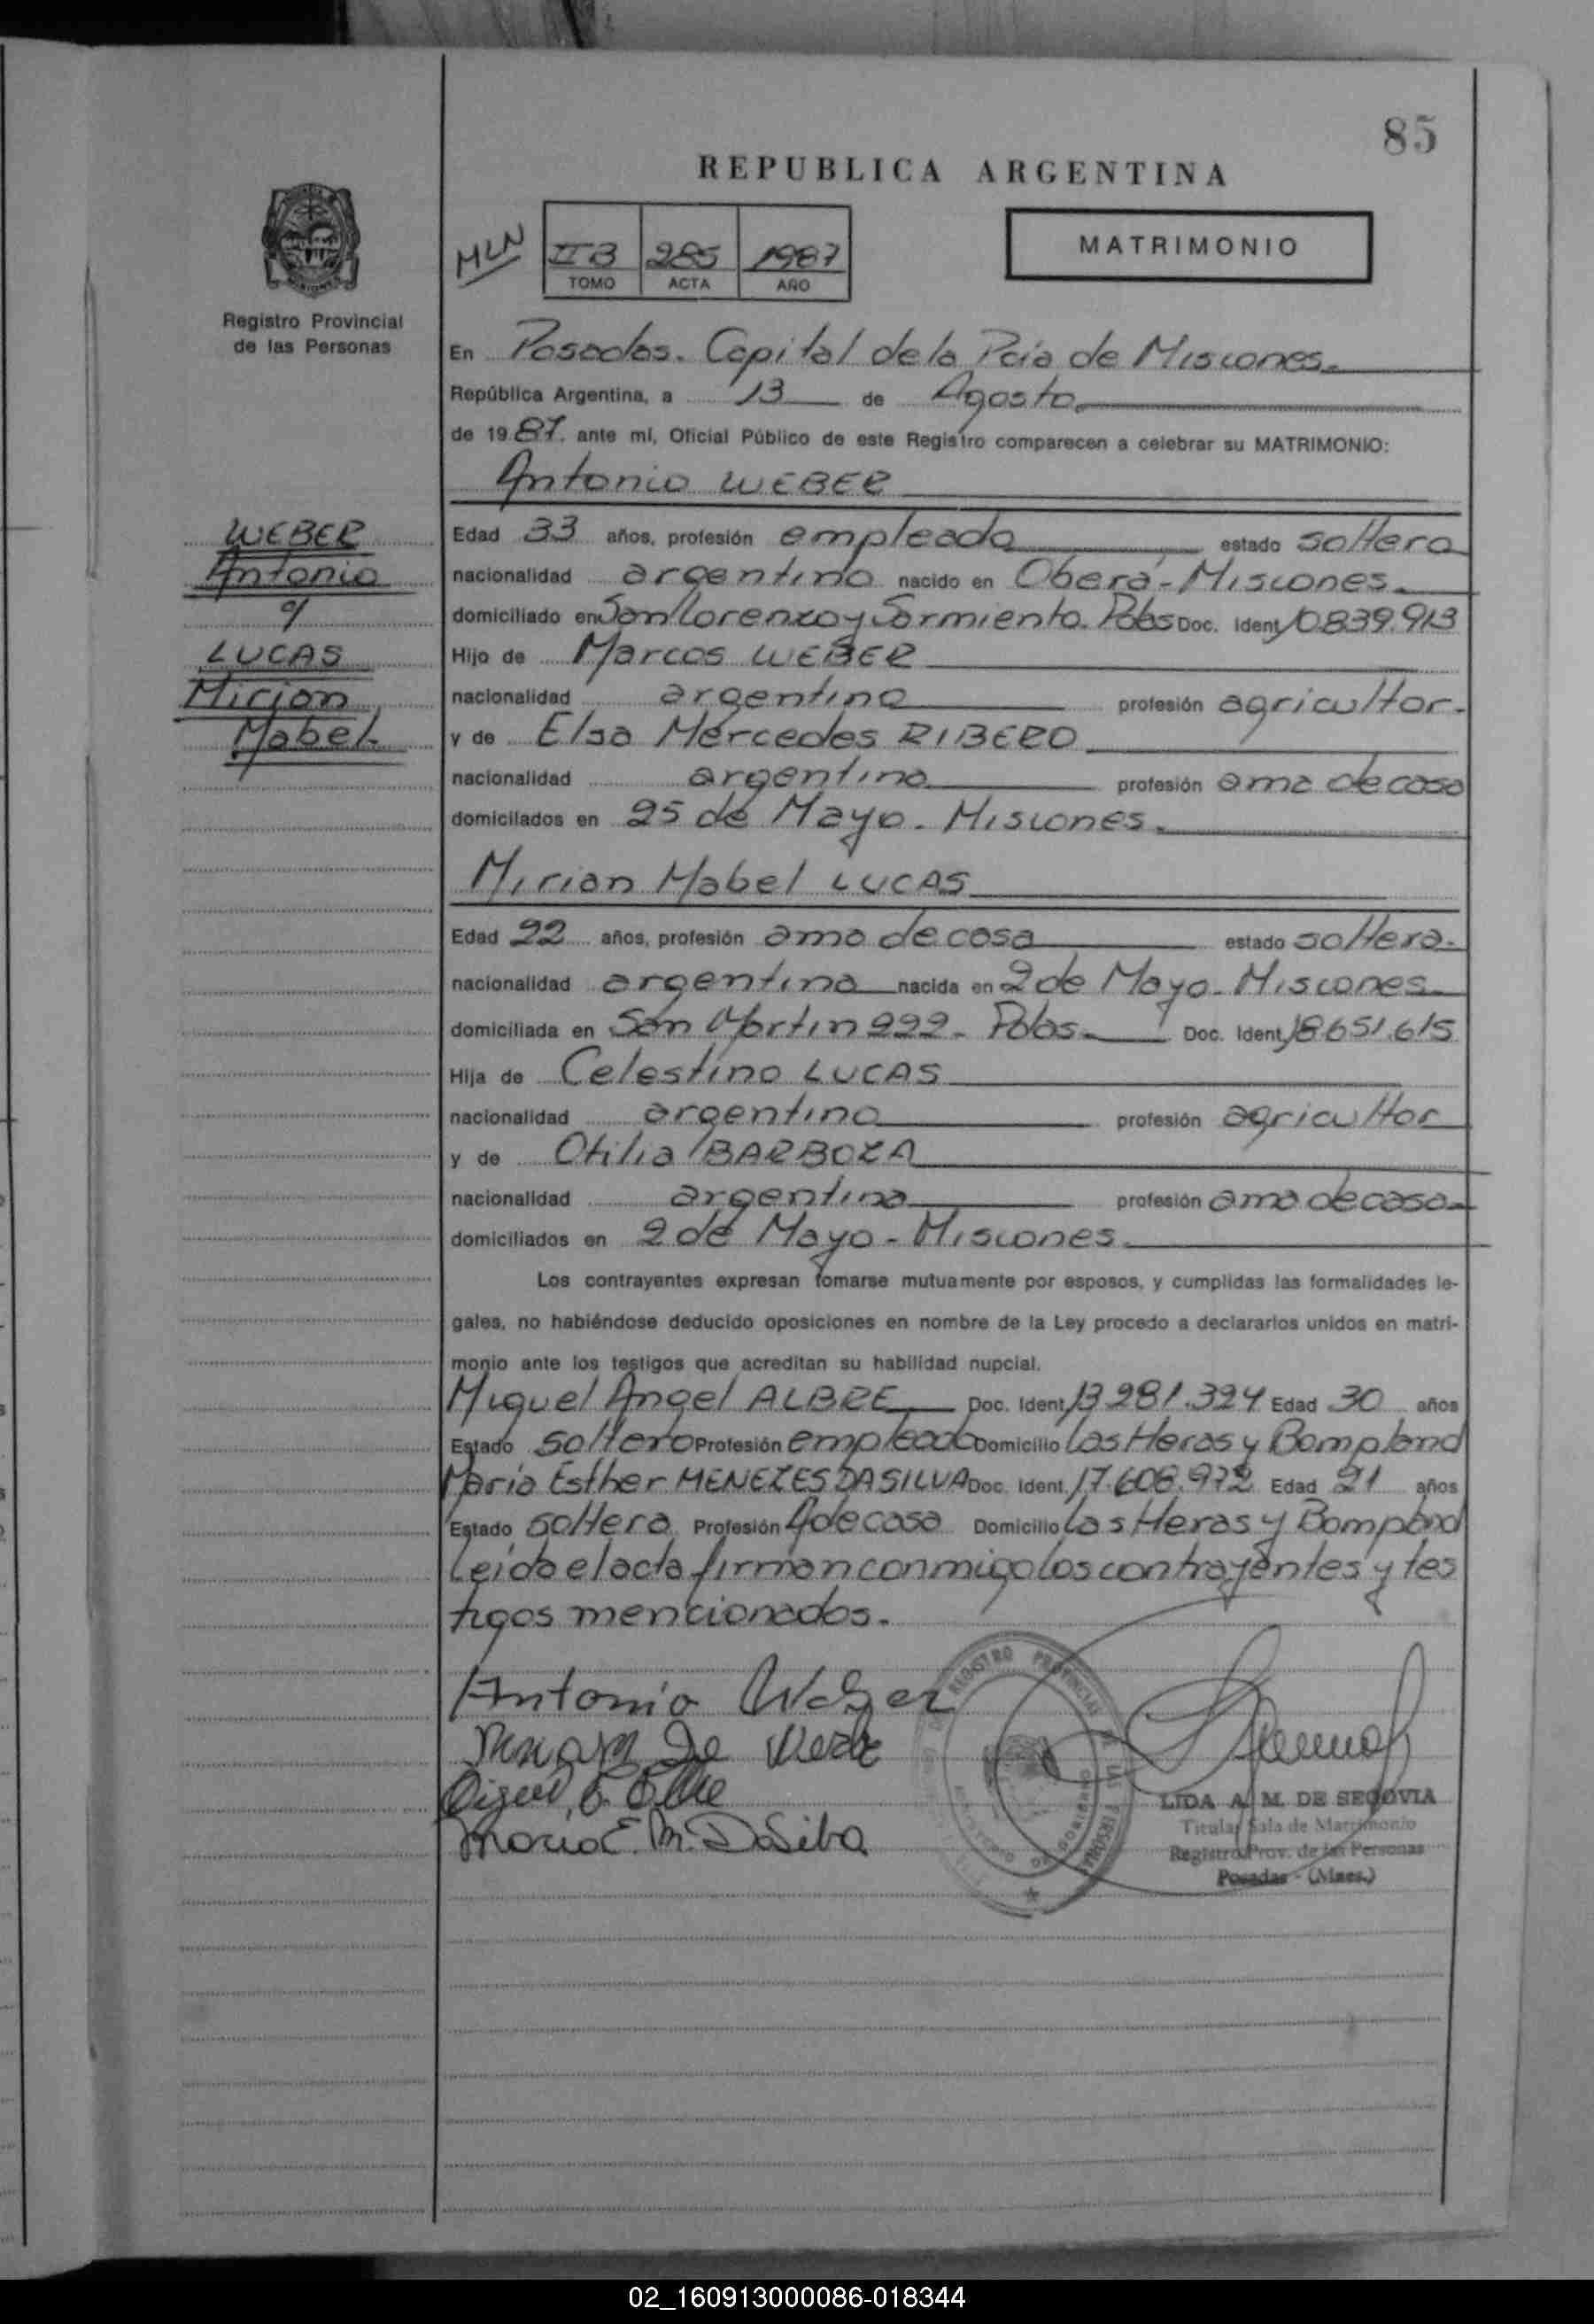 85
REPUBLICA ARGENTINA
MLN
IIB 285 1987
TOMO ACTA AÑO
MATRIMONIO
Registro Provincial
de las Personas
En Posadas. Capital de la Pcia de Misiones.
República Argentina, a 13 de Agosto
de 1987. ante mí, Oficial Público de este Registro comparecen a celebrar su MATRIMONIO:
Antonio WEBER
WEBER
Antonio
c/
LUCAS
Mirian
Mabel
Edad 33 años, profesión empleado estado soltero
nacionalidad argentino nacido en Oberá - Misiones.
domiciliado en San Lorenzo y Sarmiento. Pdas Doc. Ident. 10.839.913
Hijo de Marcos WEBER
nacionalidad argentino profesión agricultor.
y de Elsa Mercedes RIBERO
nacionalidad argentina profesión ama de casa
domicilados en 25 de Mayo. Misiones.
Mirian Mabel LUCAS
Edad 22 años, profesión ama de casa estado soltera.
nacionalidad argentina nacida en 2 de Mayo. Misiones
domiciliada en San Martin 222. Pdas. Doc. Ident. 18.651.615
Hija de Celestino LUCAS
nacionalidad argentino profesión agricultor
y de Otilia BARBOZA
nacionalidad argentina profesión ama de casa
domiciliados en 2 de Mayo - Misiones.
Los contrayentes expresan tomarse mutuamente por esposos, y cumplidas las formalidades le-
gales, no habiéndose deducido oposiciones en nombre de la Ley procedo a declararlos unidos en matri-
monio ante los testigos que acreditan su habilidad nupcial.
Miguel Angel ALBRE Doc. Ident. 13.281.324 Edad 30 años
Estado soltero Profesión empleado Domicilio Las Heras y Bompland
Maria Esther MENEZES DA SILVA Doc. Ident. 17.608.972 Edad 21 años
Estado soltera Profesión A de casa Domicilio Las Heras y Bompland
Leida el acta firman conmigo los contrayentes y tes
tigos mencionados.
Antonio Weber
Maria E. M. DaSilva
REGISTRO PROVINCIAL DE LAS PERSONAS
LIDA A. M. DE SEGOVIA
Titular Sala de Matrimonio
Registro Prov. de las Personas
Posadas - (Mnes.)
02_160913000086-018344